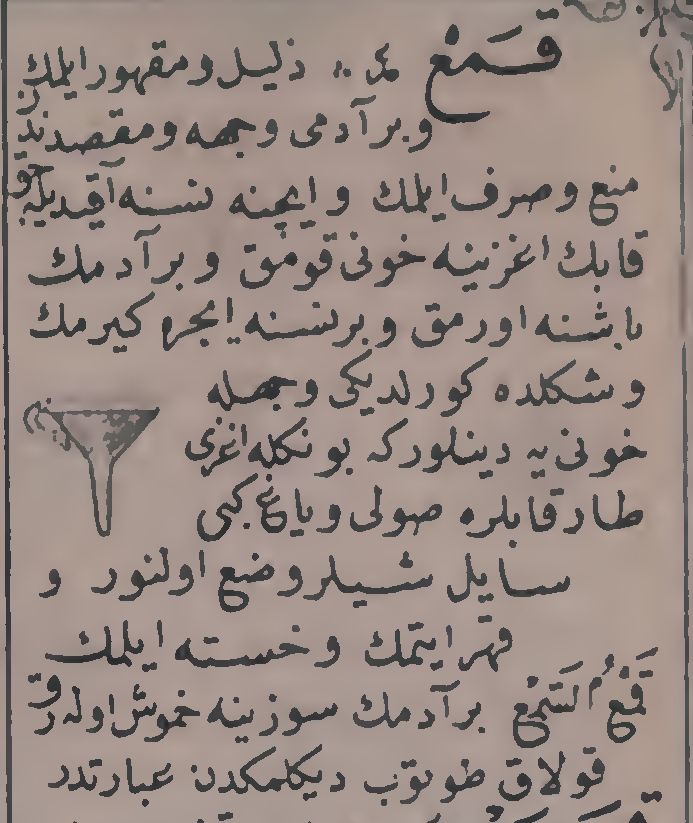 قَمْعْ ع‍ ذليل و مقهور ايلمك
و بر آدمى وجهه و مقصدندن
منع و صرف ايلمك و ايچنه نسنه آقيديله‌جق
قابك اغزينه خونى قومق و بر آدمك
باشنه اورمق و برنسنه ايچره كيرمك
و شكلده كورلديكى وجهله
خونى يه دينلور كه بونكله اغزى
طار قابلره صولى و ياغ كبى
سايل شيلر وضع اولنور و
قهر ايتمك و خسته ايلمك
قَمْعُ السَّمْعِ بر آدمك سوزينه خموش اوله‌رق
قولاق طوتوب ديكلمكدن عبارتدر